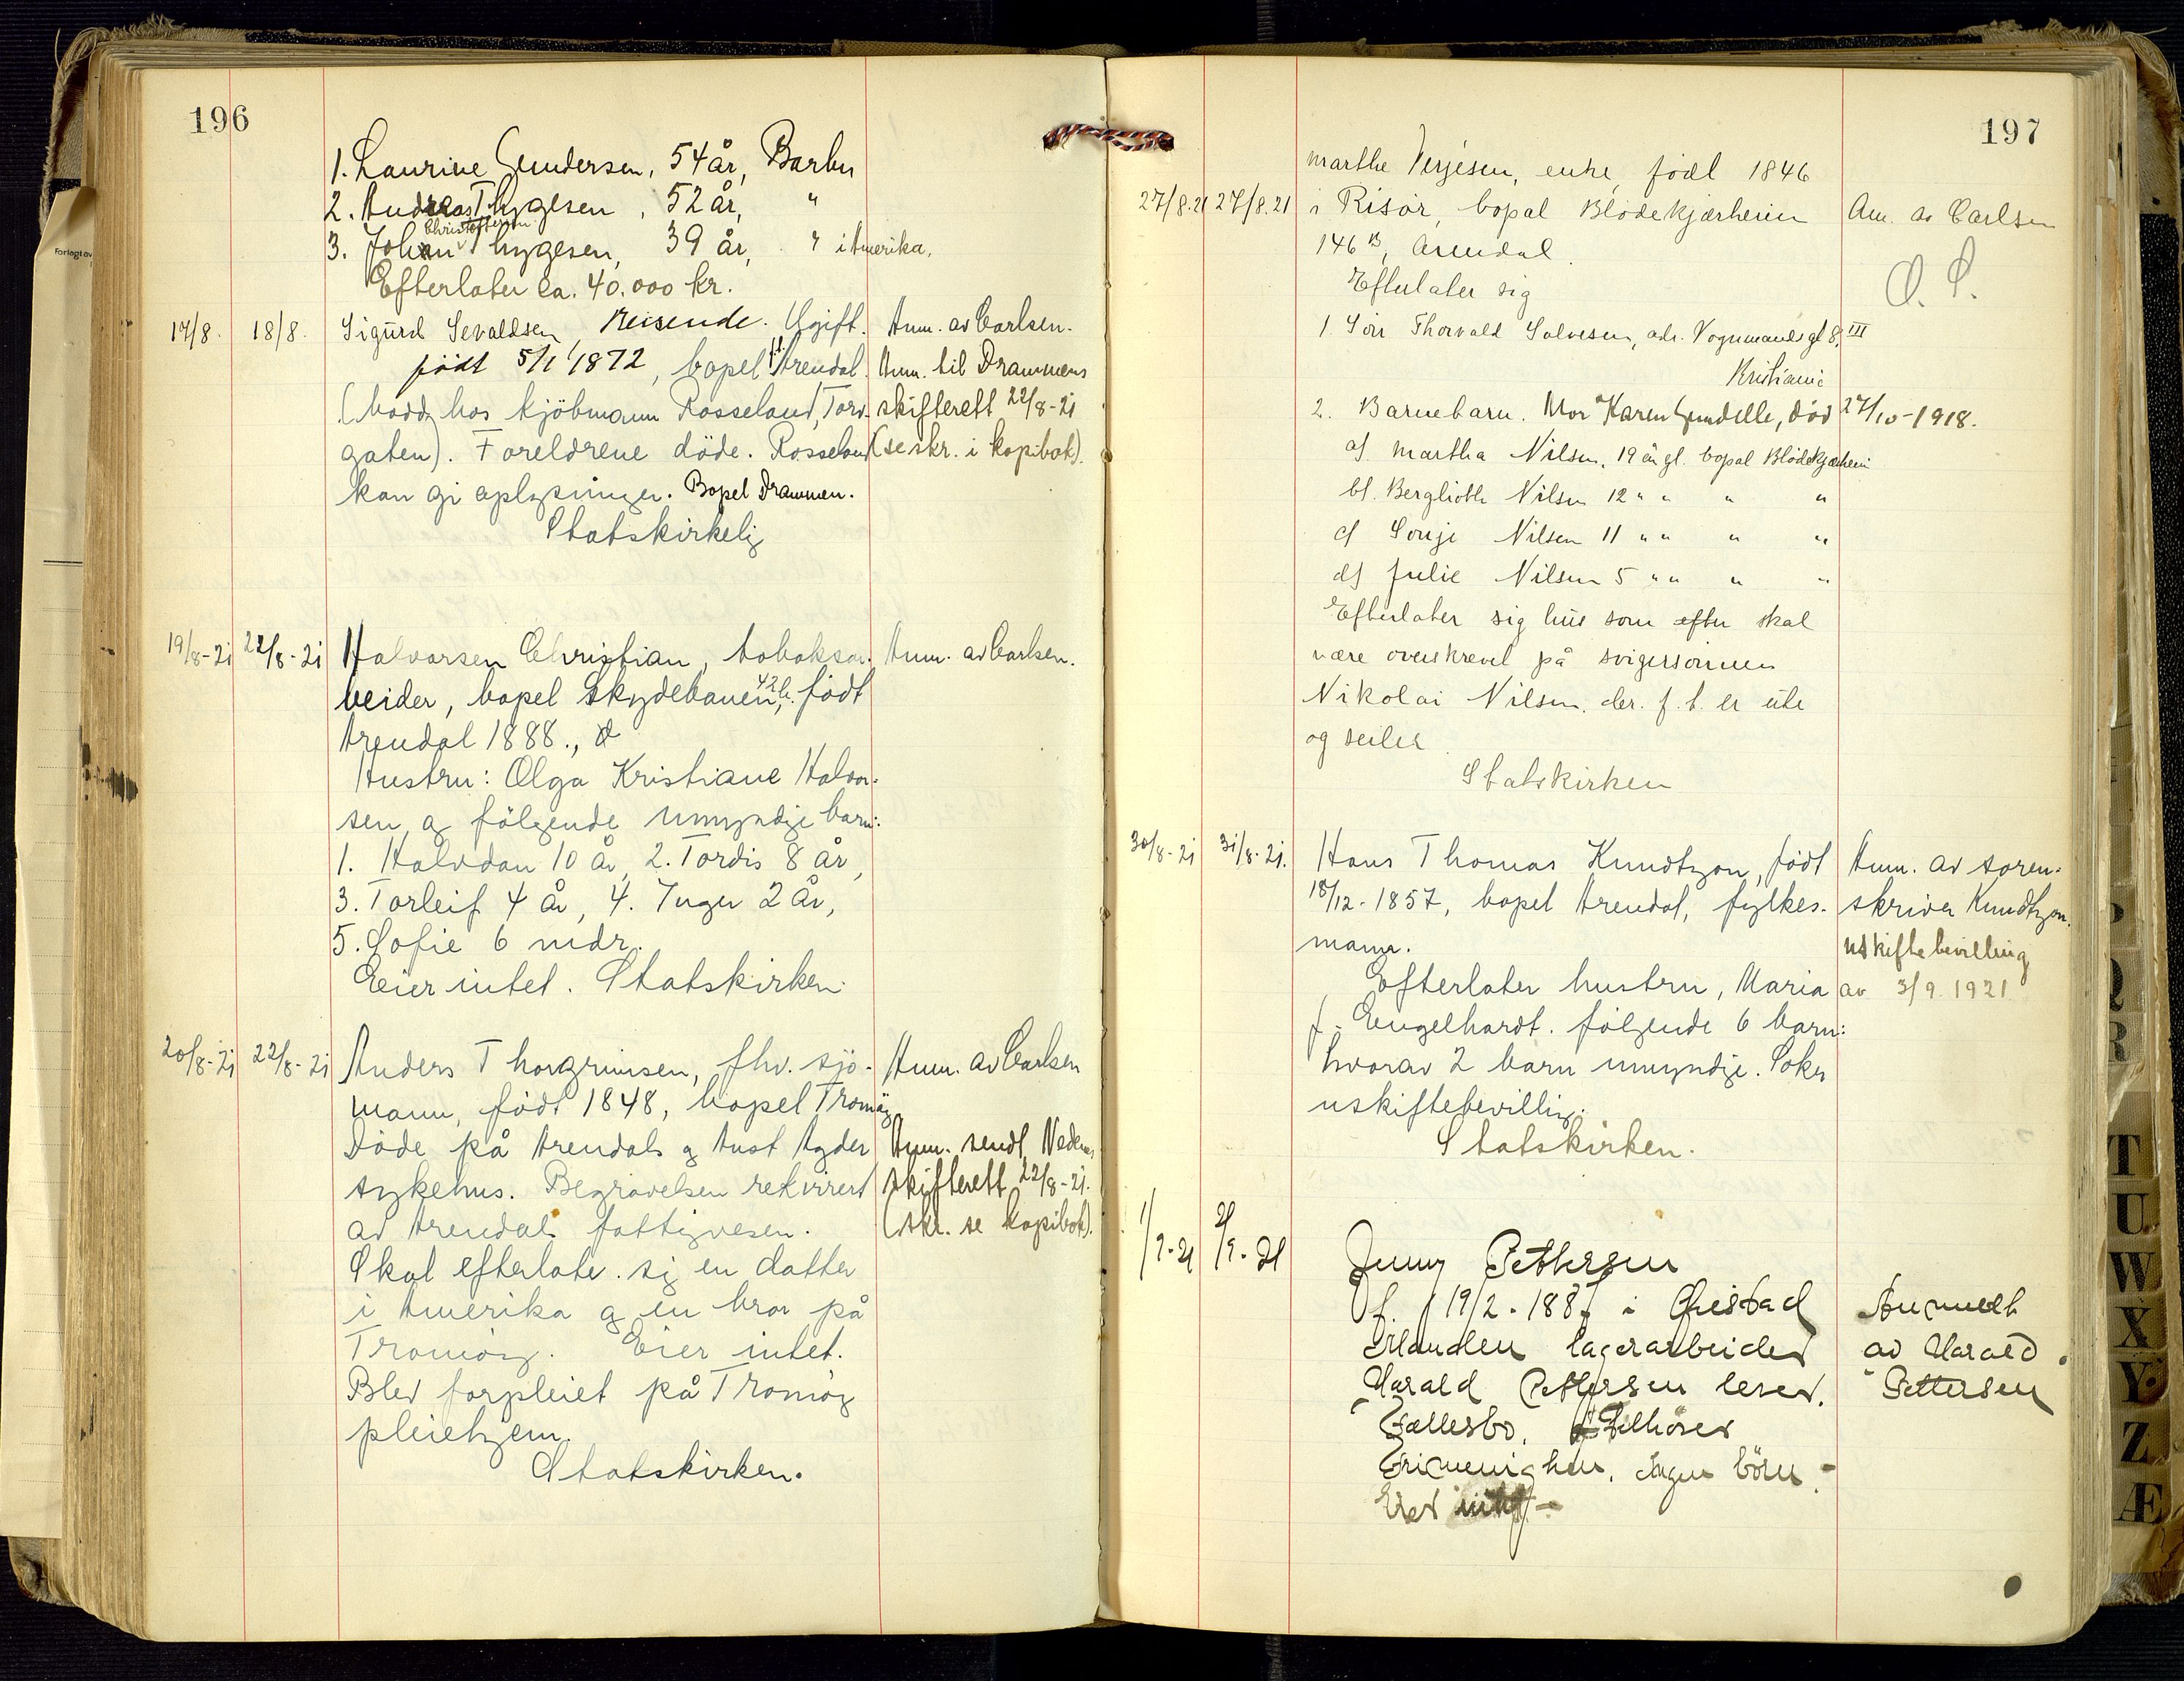 196
1. Laurine Gundersen, 54 år, Barbu
2. Andreas Thygesen, 52 år, "
Christoffersen
3. Johan Thygesen, 39 år, " i Amerika.
Efterlater ca. 40.000 kr.
17/8. 18/8. Sigurd Sevaldsen, Reisende. Ugift. Anm. av Carlsen.
född 5/1 1872, bopel Arendal. Anm. til Drammens
(bodd hos kjöbmann Rosseland, Torv- skifterett 22/8-21
gaten). Foreldrene döde. Rosseland (se skr. i kopibok).
kan gi oplysninger. Bopel Drammen.
Statskirkelig
19/8-21 22/8-21 Halvorsen Christian, tobaksar- Anm. av Carlsen.
beider, bopel Skydebanen 42b, födt
Arendal 1888.,
Hustru: Olga Kristiane Halvor-
sen, og fölgende umyndige barn:
1. Halvdan 10 år, 2. Tordis 8 år,
3. Torleif 4 år, 4. Inger 2 år,
5. Sofie 6 mdr.
Eier intet. Statskirken.
20/8-21 22/8-21 Anders Thorgrimsen, fhv. sjö- Anm. av Carlsen
mann, födt 1848, bopel Tromöy
Döde på Arendals og Aust Agder Anm. sendt Nedenes
sykehus. Begravelsen rekvirert skifterett 22/8-21.
av Arendals fattigvesen. (skr. se kopibok).
Skal efterlate sig en datter
i Amerika og en bror på
Tromöy. Eier intet.
Blev forpleiet på Tromöy
pleiehjem.
Statskirken.
197
Marthe Terjesen, enke, födt 1846
27/8.21 27/8.21 i Risör, bopal Blödekjærheien Anm. av Carlsen
146 B, Arendal.
Efterlater sig
1. Sön Thorvald Salvesen, adr. Vognmandsgt 8, III
Kristiania
2. Barnebarn. Mor Karen Gundelle, död 27/10-1918.
a) Martha Nilsen, 19 år gl. bopal Blödekjærheien
b) Bergliotte Nilsen 12 " " " "
c) Sonja Nilsen 11 " " " "
d) Julie Nilsen 5 " " " "
Efterlater sig hus som efter skal
være overskrevet på svigersönnen
Nikolai Nilsen, der f. t. er ute
og seiler.
Statskirken
30/8-21 31/8-21. Hans Thomas Knudtzon, födt Anm. av soren-
18/12-1857, bopel Arendal, fylkes- skriver Knudtzon.
mann. uskiftebevilling
Efterlater hustru, Maria av 3/9 1921
f. Engelhardt. fölgende 6 barn:
hvorav 2 barn umyndige. Söker
uskiftebevilling.
Statskirken.
1/9-21 2/9-21 Jenny Pettersen
f. 19/2-188 i Öiestad Anmeldt
Manden lagerarbeider av Harald
Harald Pettersen lever. Pettersen
Fællesbo. Tilhörer
Frimenigheten. Ingen börn.-
Eier intet -